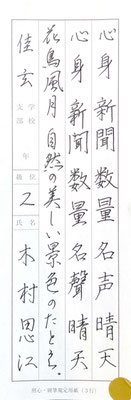 心身 新聞 数量 名声 晴天
心身 新聞 数量 名聲 晴天
花鳥風月 自然の美しい景色のたとえ。
佳玄 学校 支部 年 級位 2 氏名 木村思江
硬筆鑑定用紙(3行)